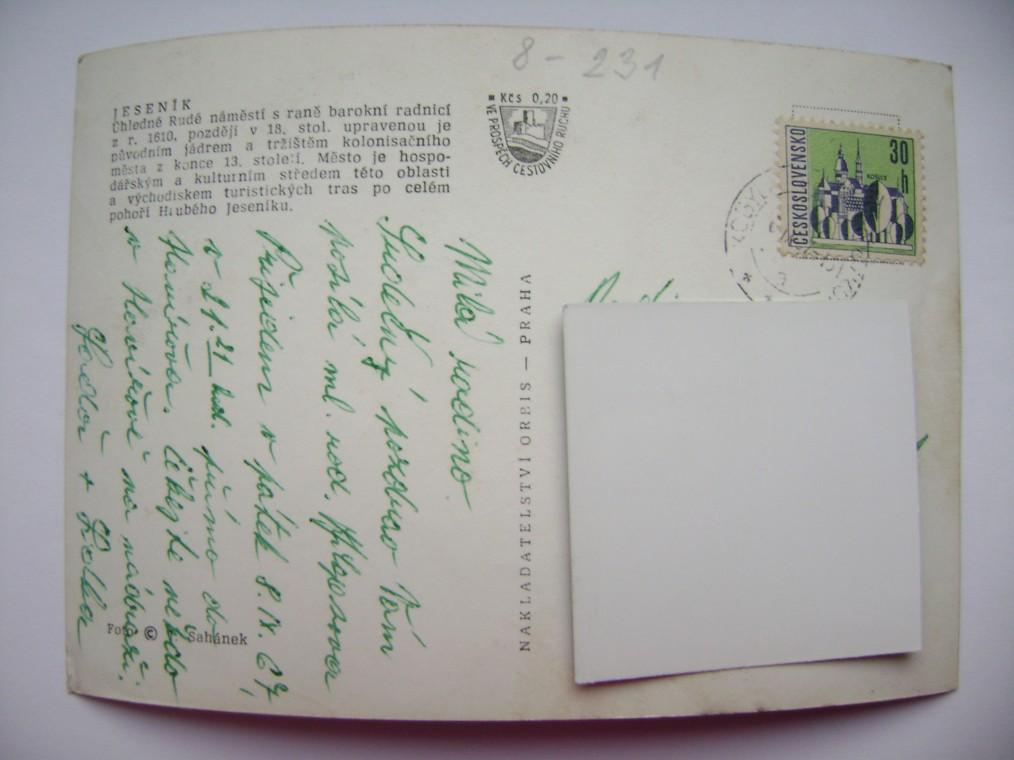 8-231
JESENÍK
Úhledné Rudé náměstí s raně barokní radnicí
z r. 1610, později v 18. stol. upravenou je
původním jádrem a tržištěm kolonisačního
města z konce 13. století. Město je hospo-
dářským a kulturním středem této oblasti
a východiskem turistických tras po celém
pohoří Hrubého Jeseníku.
Kčs 0,20
VE PROSPĚCH CESTOVNÍHO RUCHU
ČESKOSLOVENSKO
30
h
KOŠICE
NAKLADATELSTVÍ ORBIS — PRAHA
Milá rodino.
Srdečný pozdrav Vám
posílá ml. rod.
Přijedem v pátek 8. IX. 67,
v 21.21 hod. přímo do
Havířova. Čekejte někdo
v Havířově na nádraží.
Foto © Sahánek